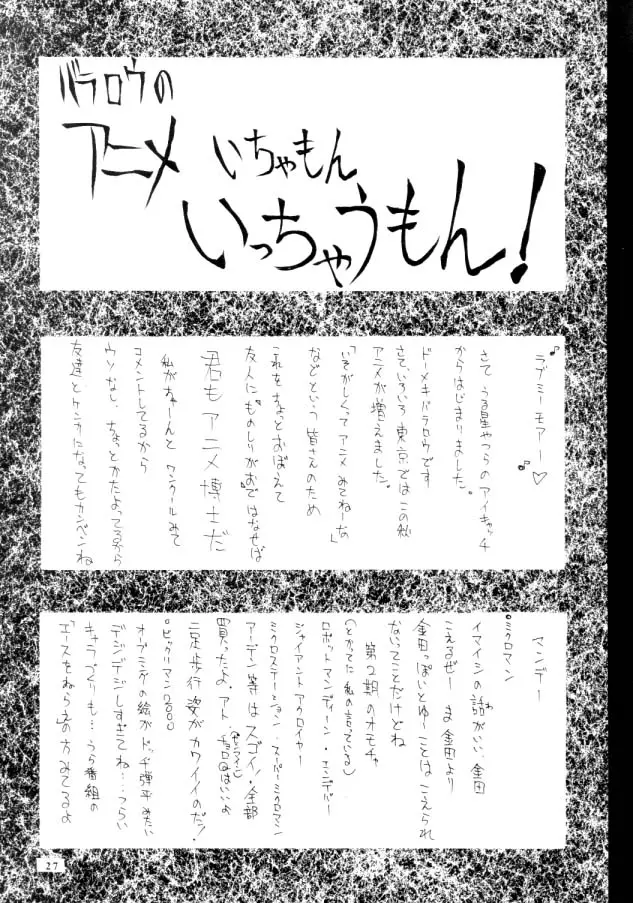 バラロウの
アニメ いちゃもん
いっちゃうもん!
ラブミーモアー♡
さて うる星やつらのアイキャッチ
からはじまりました。
ドーメキバラロウです
さて、いろいろ東京ではこの秋
アニメが増えました。
「いそがしくって アニメ みてねーなぁ」
などという 皆さんのため
これをちょっとおぼえて
友人に"ものしりがお"ではなせば
君もアニメ博士だ
私がなーんと ワンクールみて
コメントしてるから
ウソなし、ちょっとかたよってるから
友達とケンカになってもカンベンね
マンデー
°ミクロマン
イマイシの話がいい、金田
こえるぜー ま 金田より
金田っぽいとゆーことはこえられ
ないってことだけどね
第2期のオモチャ
(とかってに私の言っている)
ロボットマン ディーン・エンデバー
ジャイアントアクロイヤー
ミクロステーション・スーパーミクロマン
アーデン等はスゴイ!全部
買ったよ。アト チョロQはいいよ
二足歩行姿がカワイイのだ!
°ビックリマン2000
オープニングの絵がドッチ弾平みたい
デジデジしすぎてね…つらい
キャラづくりも…うら番組の
「エースをねらえ」の方みてるよ
27